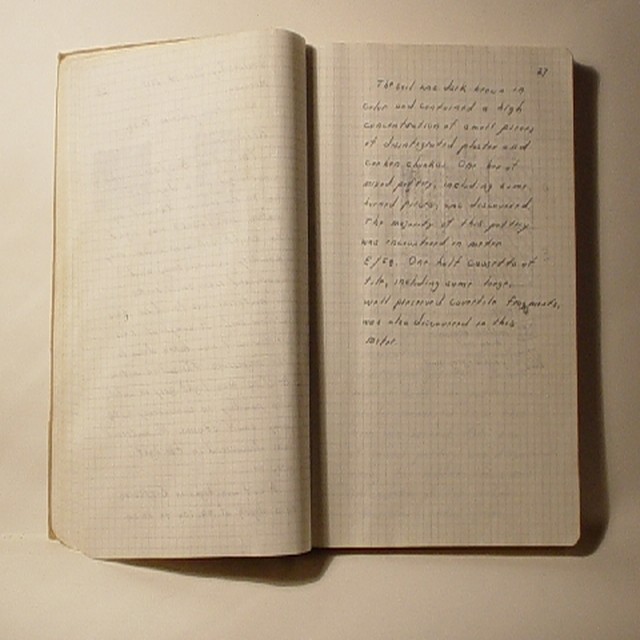 27
The soil was dark brown in
color and contained a high
concentration of small pieces
of disintegrated plaster and
carbon chunks. One box of
mixed pottery, including some
burned pieces, was discovered.
The majority of this pottery
was encountered in meter
E/59. One half cassetta of
tile, including some large,
well preserved cover tile fragments,
was also discovered in this
meter.